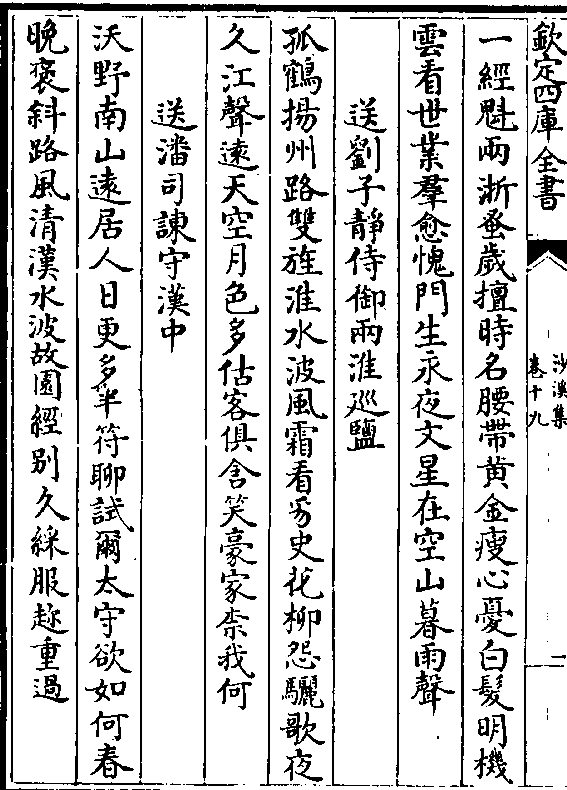 欽定四庫全書
沙溪集
卷十九
二
一經魁兩浙蚤歲擅時名腰帶黄金瘦心憂白髮明機
雲看世業羣愈愧門生永夜文星在空山暮雨聲
送劉子靜侍御兩淮廵鹽
孤鶴揚州路雙旌淮水波風霜看豸史花柳怨驪歌夜
久江聲遠天空月色多估客俱含笑豪家柰我何
送潘司諫守漢中
沃野南山遠居人日更多半符聊試爾太守欲如何春
晚褒斜路風清漢水波故園經别久綵服趂重過